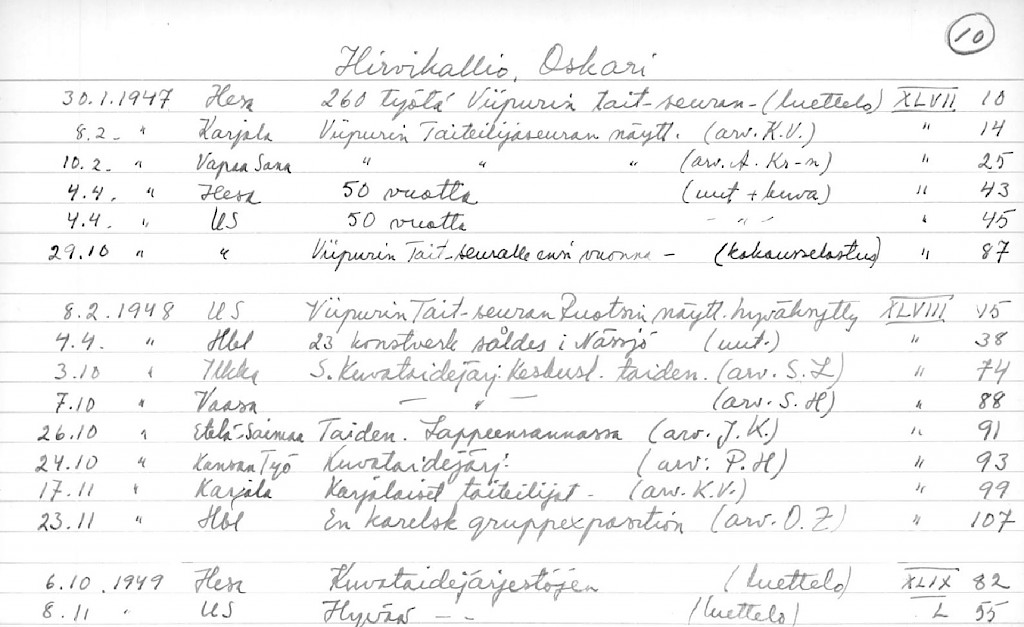 10
Hirvikallio, Oskari
30.1.1947 Hesa 260 työtä Viipurin tait-seuran-(luettelo) XLVII 10
8.2- " Karjala Viipurin Taiteilijaseuran näytt. (arv. K.V.) " 14
10.2- " Vapaa Sana " " " (arv. A. Kr-n) " 25
4.4. " Hesa 50 vuotta (uut + kuva) " 43
4.4. " US 50 vuotta - " - " 45
29.10 " " Viipurin Tait-seuralle ensi vuonna - (kokousselostus) " 87
8.2.1948 US Viipurin Tait-seuran Ruotsin näytt. hyväksytty XLVIII 45
4.4. " Hbl 23 konstverk såldes i Nässjö (uut.) " 38
3.10 " Ilkka S. Kuvataidejärj. Keskusl. taiden. (arv. S.L) " 74
7.10 " Vaasa - " - (arv. S.H) " 88
26.10 " Etelä-Saimaa Taiden. Lappeenrannassa (arv. J.K.) " 91
24.10 " Kansan Työ Kuvataidejärj: (arv: P.H) " 93
17.11 " Karjala Karjalaiset taiteilijat - (arv. K.V.) " 99
23.11 " Hbl En karelsk gruppexposition (arv. O.Z) " 107
6.10.1949 Hesa Kuvataidejärjestöjen (luettelo) XLIX 82
8.11 " US Hyvän - - (luettelo) L 55